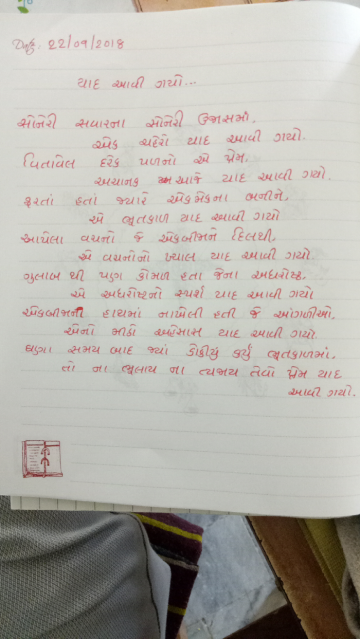 Date. 22/09/2018
યાદ આવી ગયો...
સોનેરી સવારના સોનેરી ઉજાસમાં,
એક ચહેરો યાદ આવી ગયો.
વિતાવેલ દરેક પળનો એ પ્રેમ,
અચાનક આજે યાદ આવી ગયો.
ફરતાં હતા જ્યારે એકમેકના બનીને,
એ ભૂતકાળ યાદ આવી ગયો
આપેલા વચનો જે એકબીજાને દિલથી,
એ વચનોનો ખ્યાલ યાદ આવી ગયો.
ગુલાબ થી પણ કોમળ હતા જેના અધરોષ્ઠ,
એ અધરોષ્ઠનો સ્પર્શ યાદ આવી ગયો
એકબીજાની હાથમાં નાખેલી હતી જે આંગળીઓ,
એનો મીઠો અહેસાસ યાદ આવી ગયો
ઘણા સમય બાદ જ્યાં ડોકીયું કર્યું ભૂતકાળમાં,
તો ના ભૂલાય ના ત્યજાય તેવો પ્રેમ યાદ
આવી ગયો.